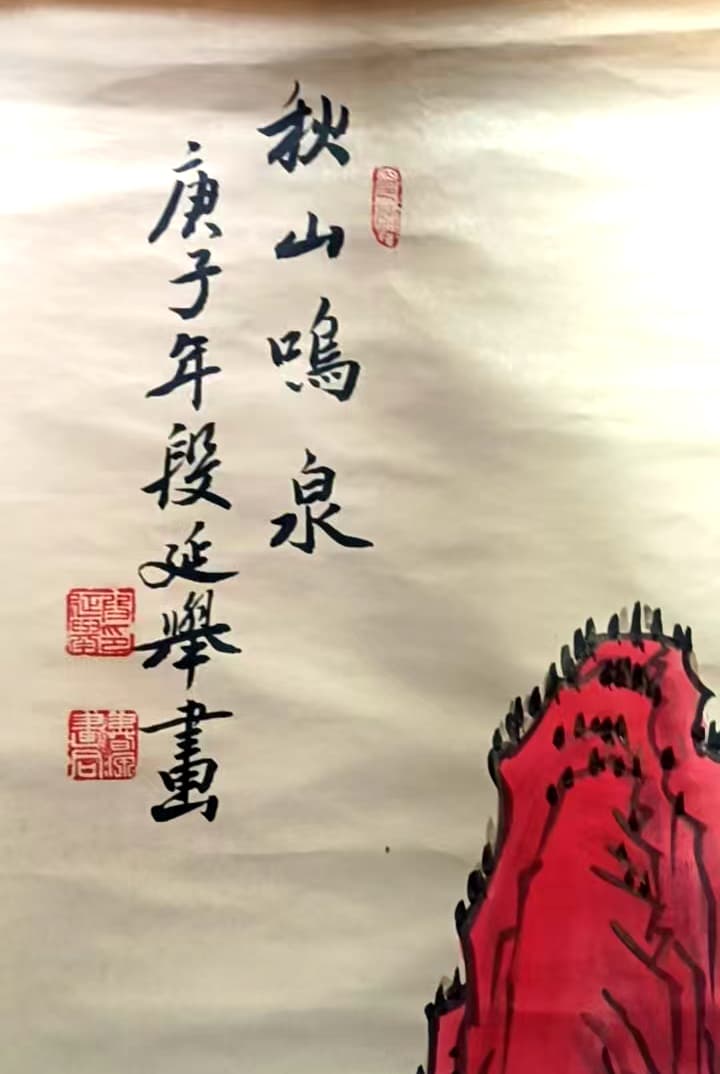 秋山鳴泉
庚子年段延舉畫